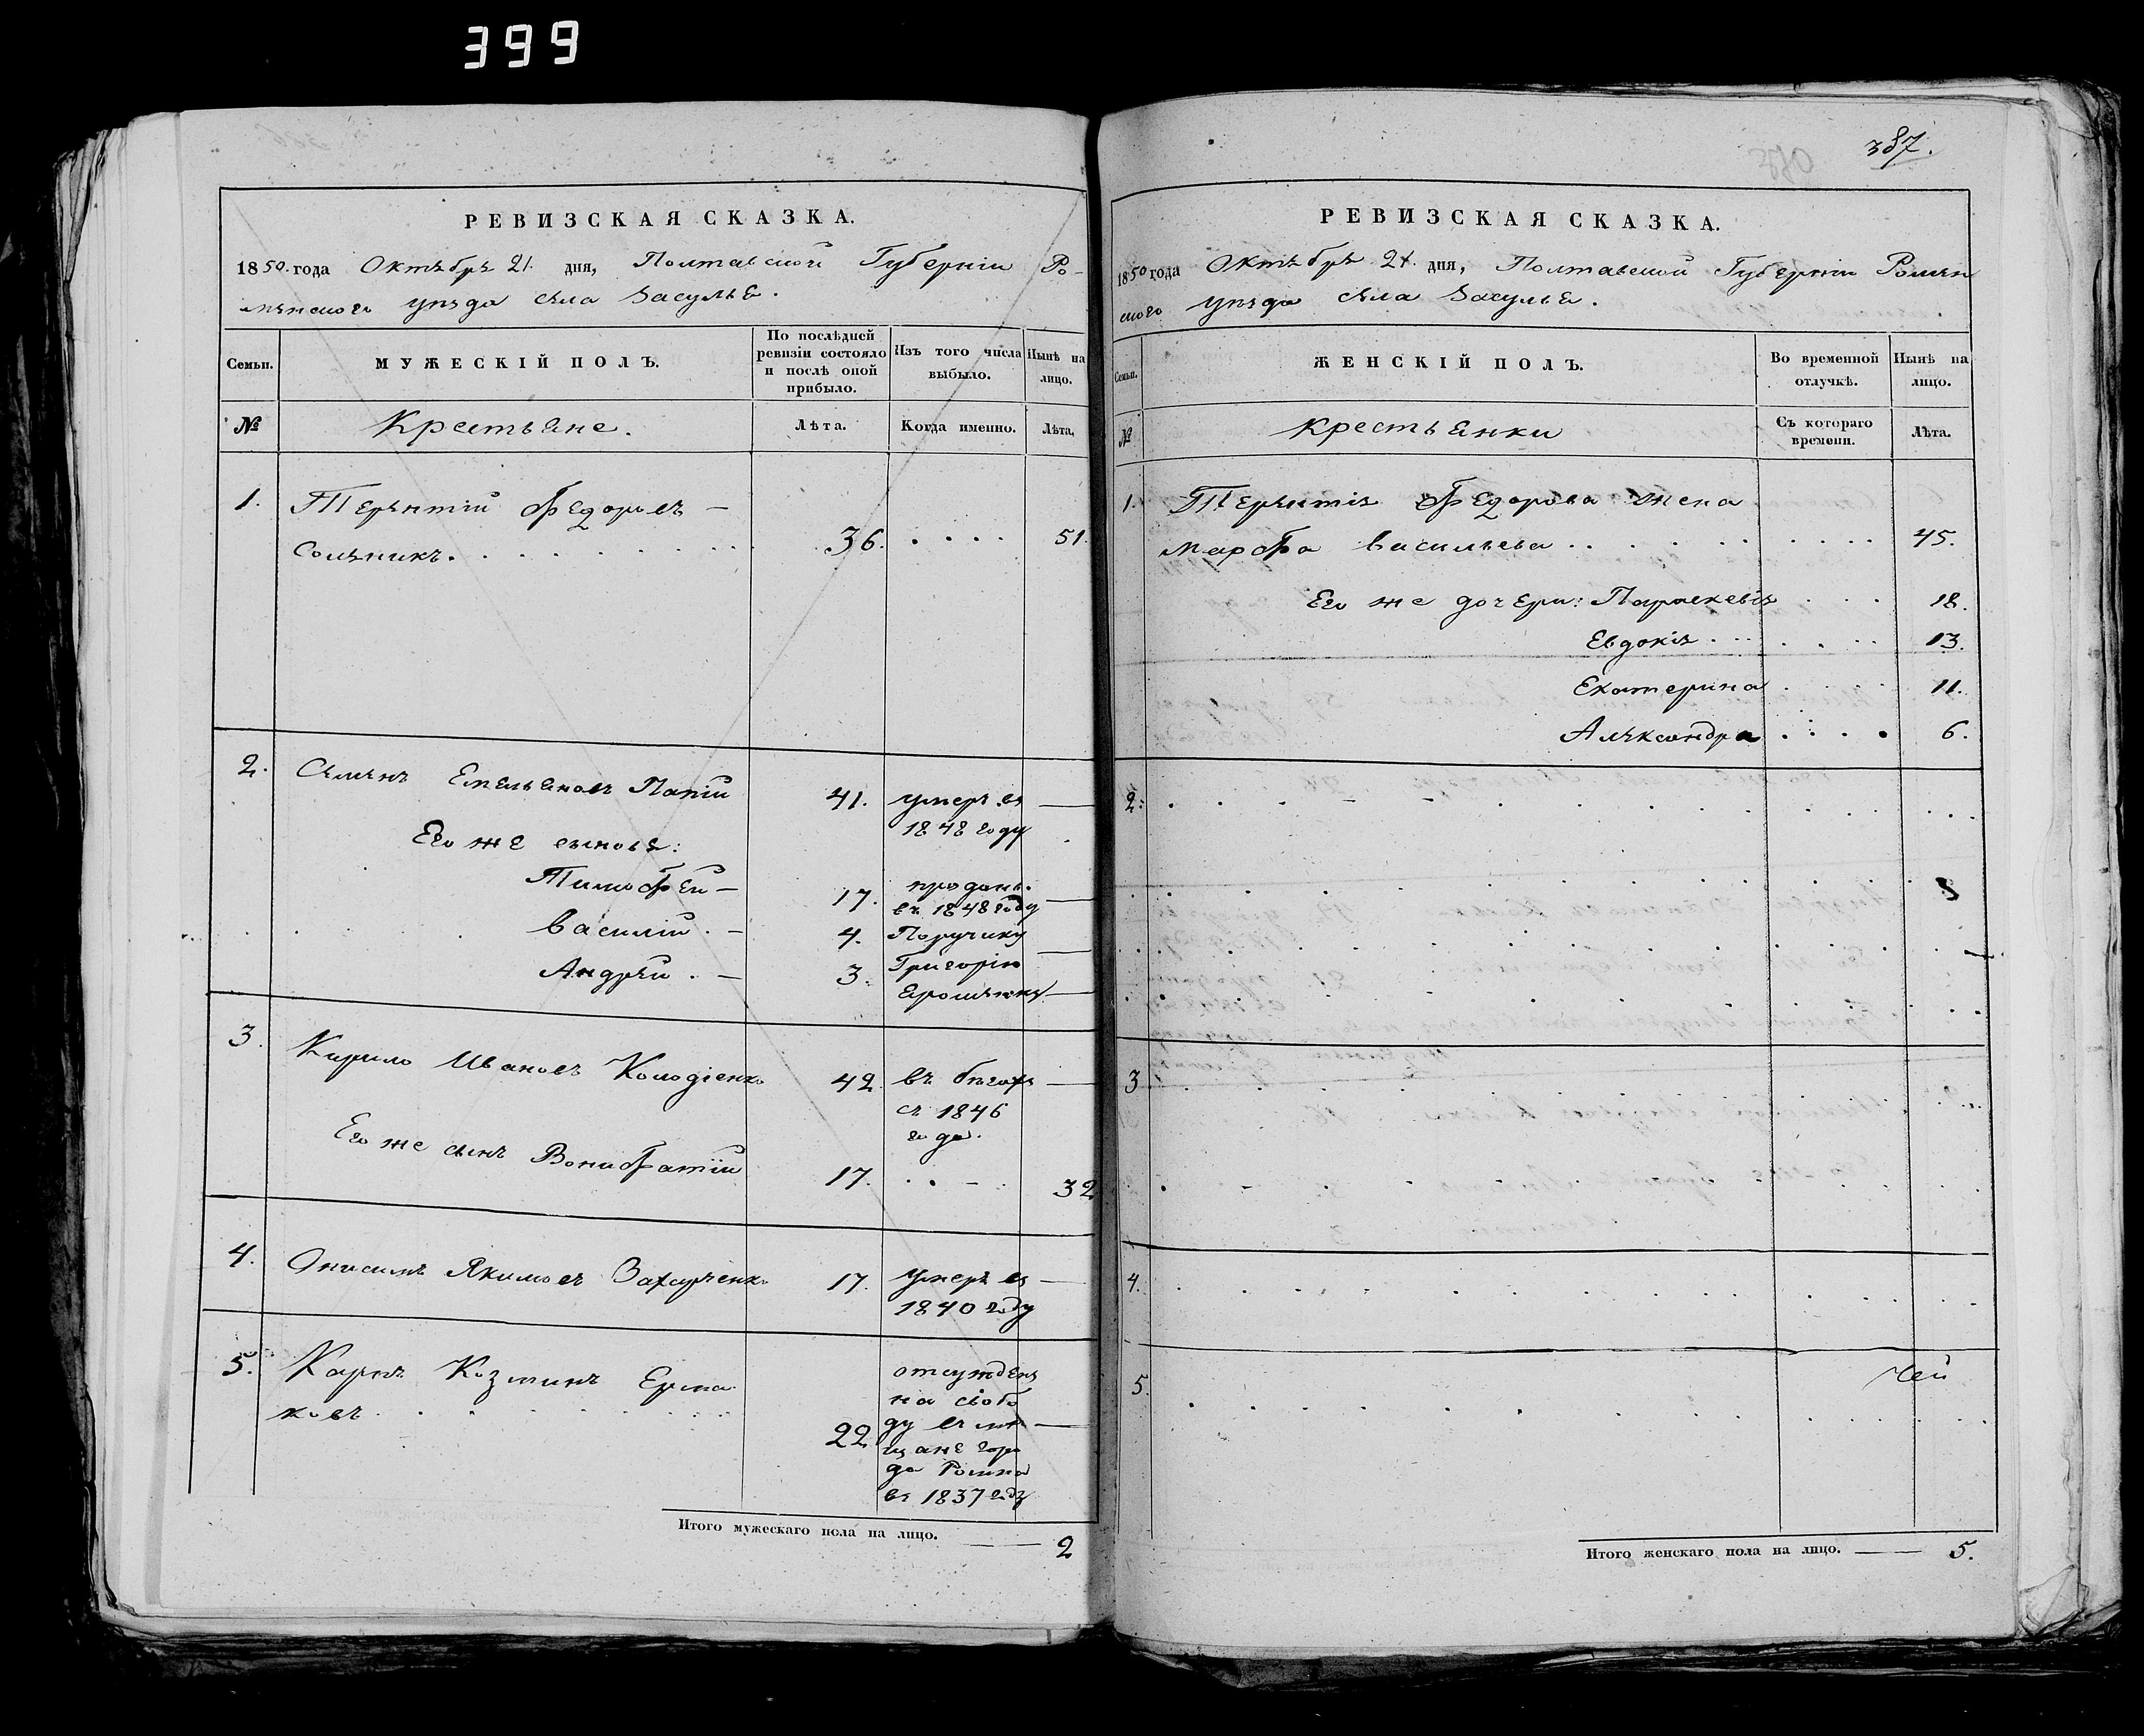 399
РЕВИЗСКАЯ СКАЗКА.
1850 года Октября 21 дня, Полтавской Губерніи Ро-
менского уезда села Засулья.
Семьи.
МУЖЕСКІЙ ПОЛЪ.
По послѣдней ревизіи состояло и послѣ оной прибыло.
Изъ того числа выбыло.
Нынѣ на лицо.
№
Крестьяне.
Лѣта.
Когда именно.
Лѣта.
1. Терентій Федоровъ —
Сомникъ. 36. 51.
2. Семенъ Емельяновъ Папій 41. умеръ въ —
1848 году
Его же сыновья:
Тимофей — 17. проданы —
въ 1848 году
Василій — 4. Поручику —
Андрей — 3. Григорію
Яроменку —
3. Кирило Ивановъ Колодіенко 42 въ бегахъ —
съ 1846
года.
Его же сынъ Вонифатій 17. 32
4. Онисимъ Якимовъ Захарченко 17. умеръ въ —
1840 году
5. Карпъ Козминъ Ерма
ковъ 22 отсужденъ
на свобо
ду въ ме —
щане горо
да Ромна
въ 1837 году
Итого мужескаго пола на лицо. — 2
387.
РЕВИЗСКАЯ СКАЗКА.
1850 года Октября 21 дня, Полтавской Губерніи Ромен
ского уезда села Засулья.
Семьи.
ЖЕНСКІЙ ПОЛЪ.
Во временной отлучкѣ.
Нынѣ на лицо.
№
Крестьянки
Съ котораго времени.
Лѣта.
1. Терентія Федорова жена
Марфа Васильева 45.
Его же дочери: Параскевія 18.
Евдокія 13.
Екатерина 11.
Александра 6.
2.
3
4.
5.
Итого женскаго пола на лицо. — 5.